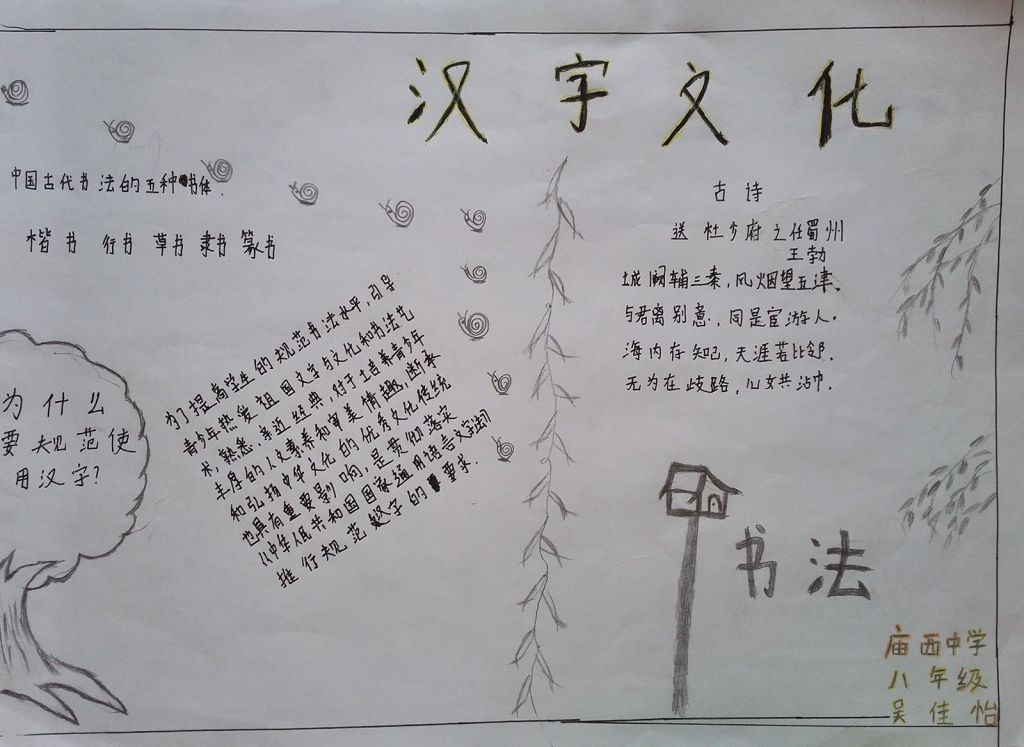 汉字文化
中国古代书法的五种书体.
楷书 行书 草书 隶书 篆书
为什么
要规范使
用汉字?
为了提高学生的规范书法水平,引导
青少年热爱祖国文字与文化和书法艺
术,熟悉、亲近经典,对于培养青少年
丰厚的人文素养和审美情趣,渐承
和弘扬中华文化的优秀文化传统
也具有重要影响,是贯彻落实
《中华人民共和国国家通用语言文字法》
推行规范汉字的要求.
古诗
送杜少府之任蜀州
王勃
城阙辅三秦,风烟望五津.
与君离别意,同是宦游人.
海内存知己,天涯若比邻.
无为在歧路,儿女共沾巾.
书法
庙西中学
八年级
吴佳怡